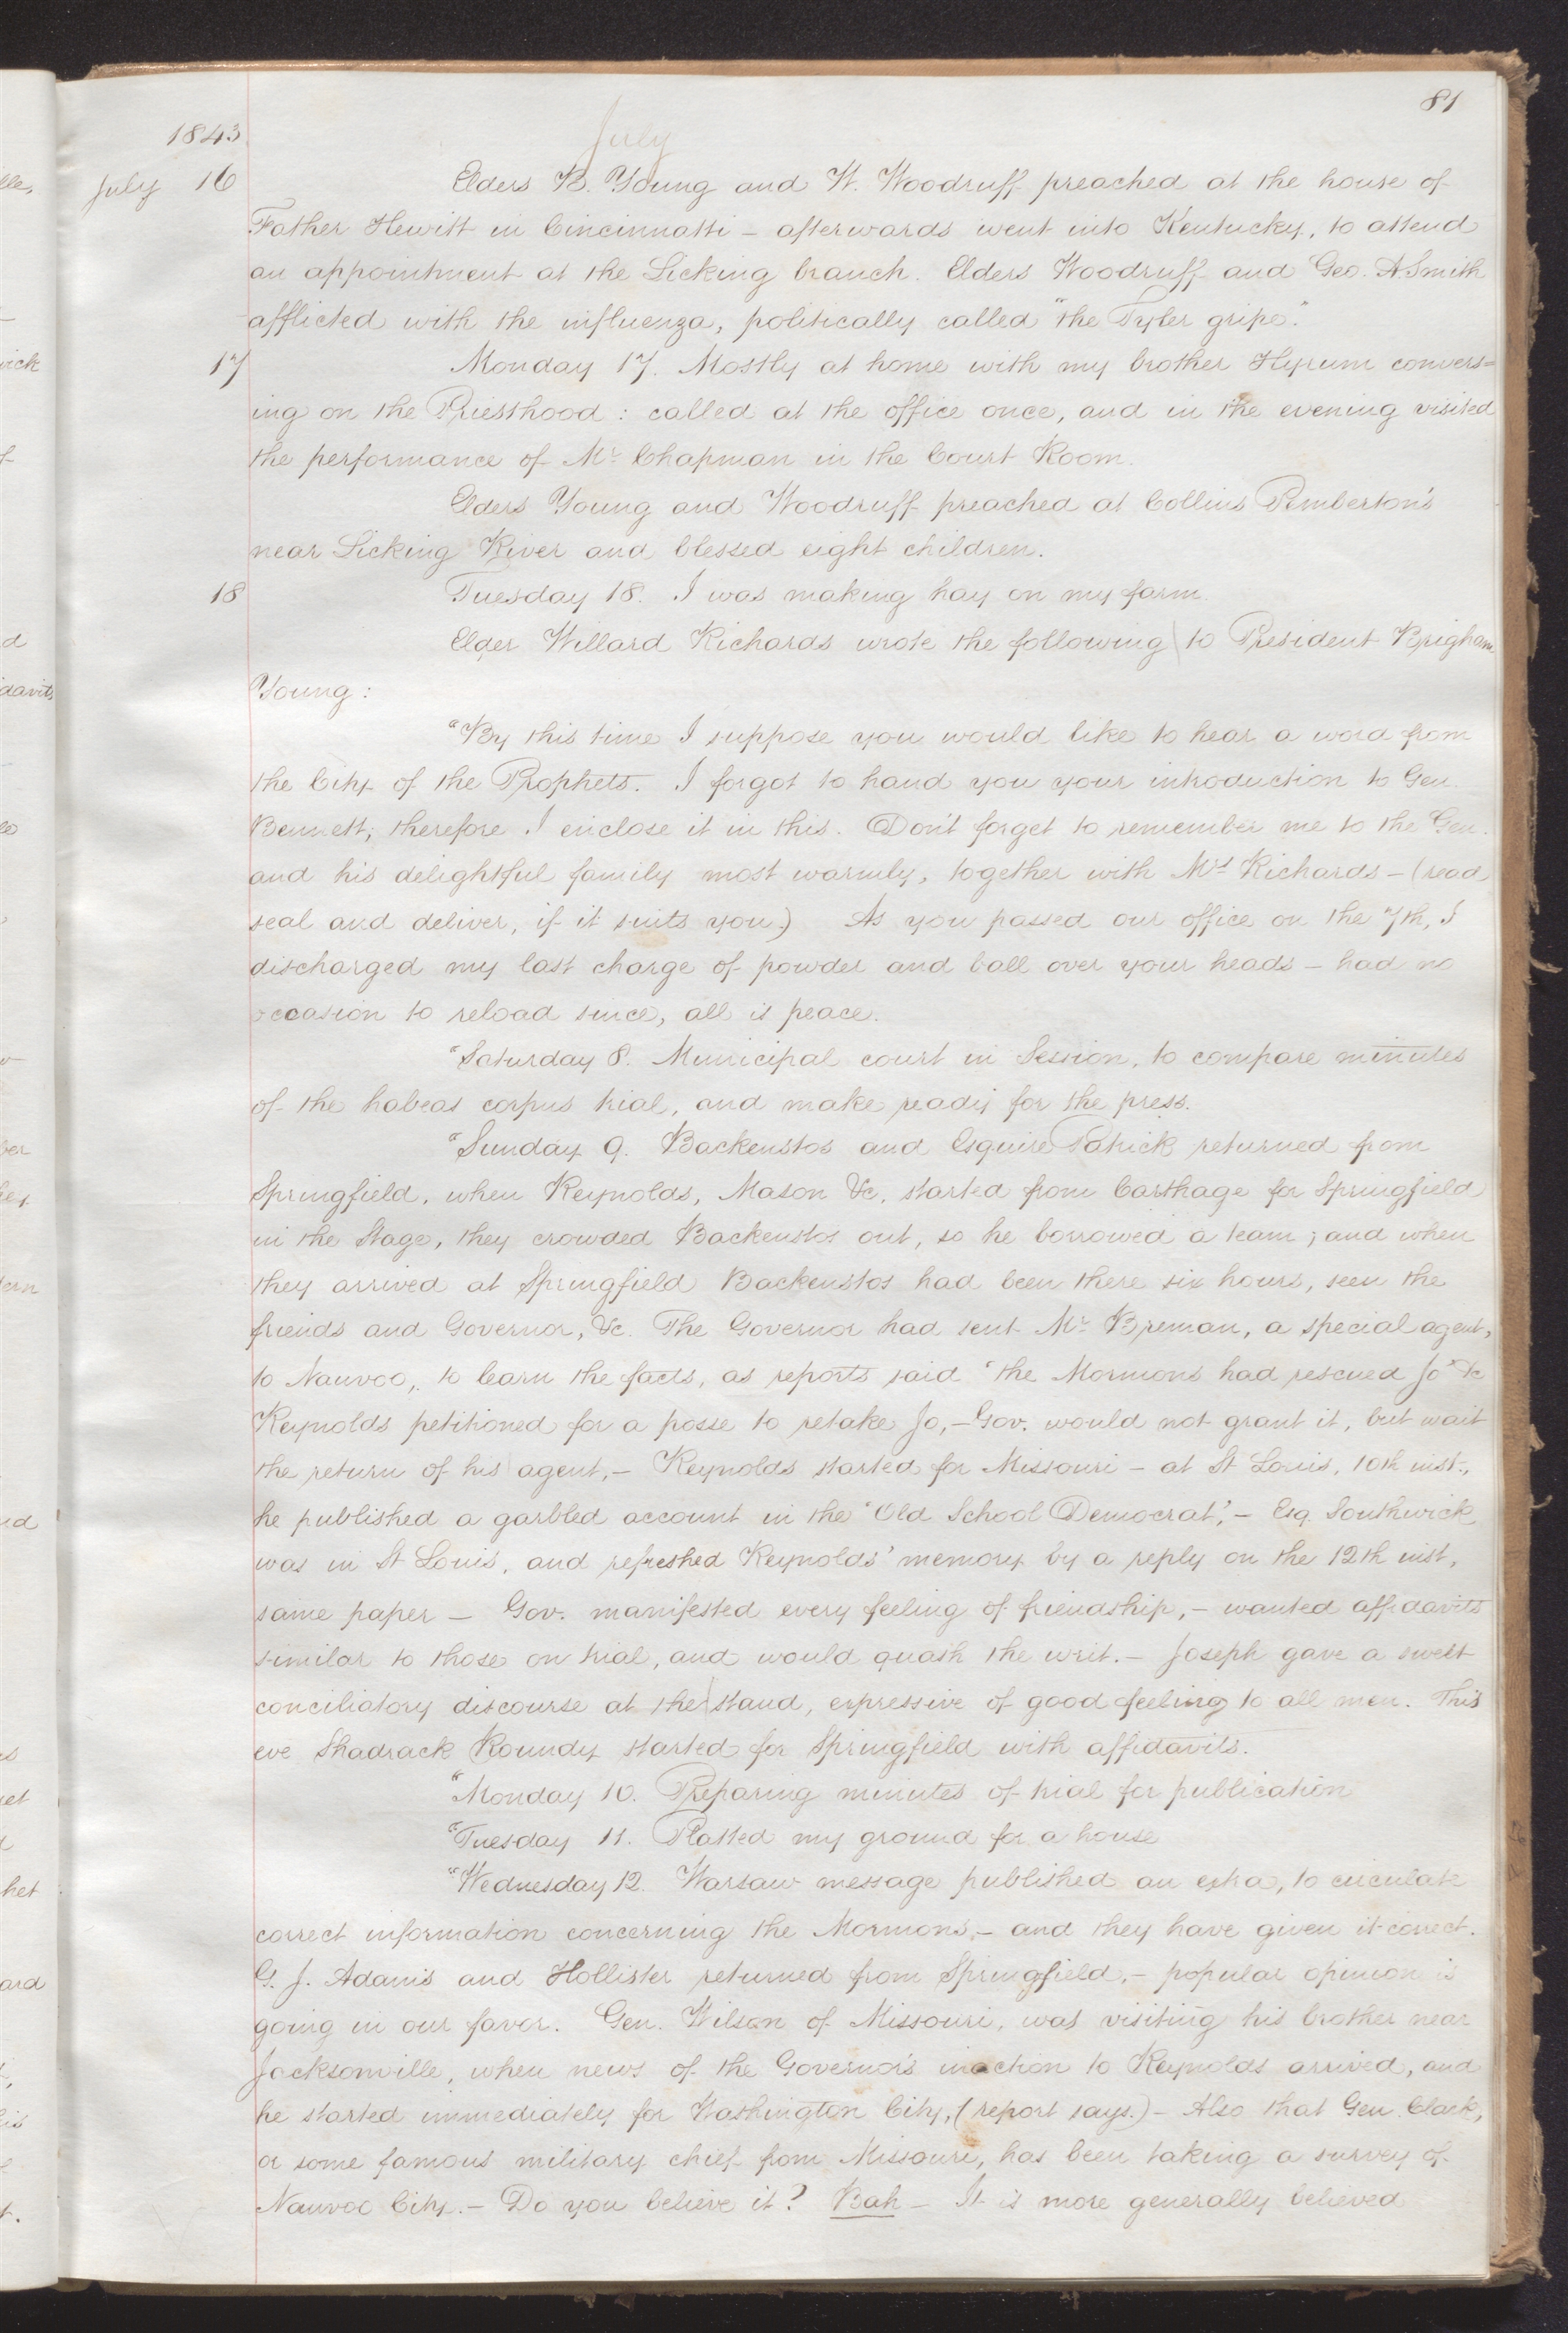 81
1843
July
July 16 Elders B. Young and W. Woodruff preached at the house of
Father Hewitt in Cincinnatti – afterwards went into Kentucky, to attend
an appointment at the Licking branch. Elders Woodruff and Geo. A Smith
afflicted with the influenza, politically called "the Tyler gripe."
17 Monday 17. Mostly at home with my brother Hyrum convers=
ing on the Priesthood: called at the office once, and in the evening visited
the performance of Mr. Chapman in the Court Room.
Elders Young and Woodruff preached at Collins Pemberton's
near Licking River and blessed eight children.
18 Tuesday 18. I was making hay on my farm.
Elder Willard Richards wrote the following to President Brigham
Young:
"By this time I suppose you would like to hear a word from
the City of the Prophets. I forgot to hand you your introduction to Gen.
Bennett; therefore I enclose it in this. Don't forget to remember me to the Gen.
and his delightful family most warmly, together with Mrs Richards – (read
seal and deliver, if it suits you.) As you passed our office on the 7th, I
discharged my last charge of powder and ball over your heads – had no
occasion to reload since, all is peace.
"Saturday 8. Municipal court in Session, to compare minutes
of the habeas corpus trial, and make ready for the press.
"Sunday 9. Backenstos and Esquire Patrick returned from
Springfield, when Reynolds, Mason &c, started from Carthage for Springfield
in the Stage, they crowded Backenstos out, so he borrowed a team; and when
they arrived at Springfield Backenstos had been there six hours, seen the
friends and Governor, &c. The Governor had sent Mr. Breman, a special agent,
to Nauvoo, to learn the facts, as reports said "the Mormons had rescued Jo" &c
Reynolds petitioned for a posse to retake Jo, – Gov. would not grant it, but wait
the return of his agent, – Reynolds started for Missouri – at St Louis, 10th inst.,
he published a garbled account in the "Old School Democrat", – Esq. Southwick
was in St Louis, and refreshed Reynolds' memory by a reply on the 12th inst,
same paper – Gov. manifested every feeling of friendship, – wanted affidavits
similar to those on trial, and would quash the writ. – Joseph gave a sweet
conciliatory discourse at the stand, expressive of good feeling to all men. This
eve Shadrack Roundy started for Springfield with affidavits.
"Monday 10. Preparing minutes of trial for publication
"Tuesday 11. Platted my ground for a house
"Wednesday 12. Warsaw message published an extra, to circulate
correct information concerning the Mormons, – and they have given it correct.
G. J. Adams and Hollister returned from Springfield, – popular opinion is
going in our favor. Gen. Wilson of Missouri, was visiting his brother near
Jacksonville, when news of the Governor's inaction to Reynolds arrived, and
he started immediately for Washington City, (report says.) – Also that Gen. Clark,
or some famous military chief from Missouri, has been taking a survey of
Nauvoo City. – Do you believe it? Bah – It is more generally believed